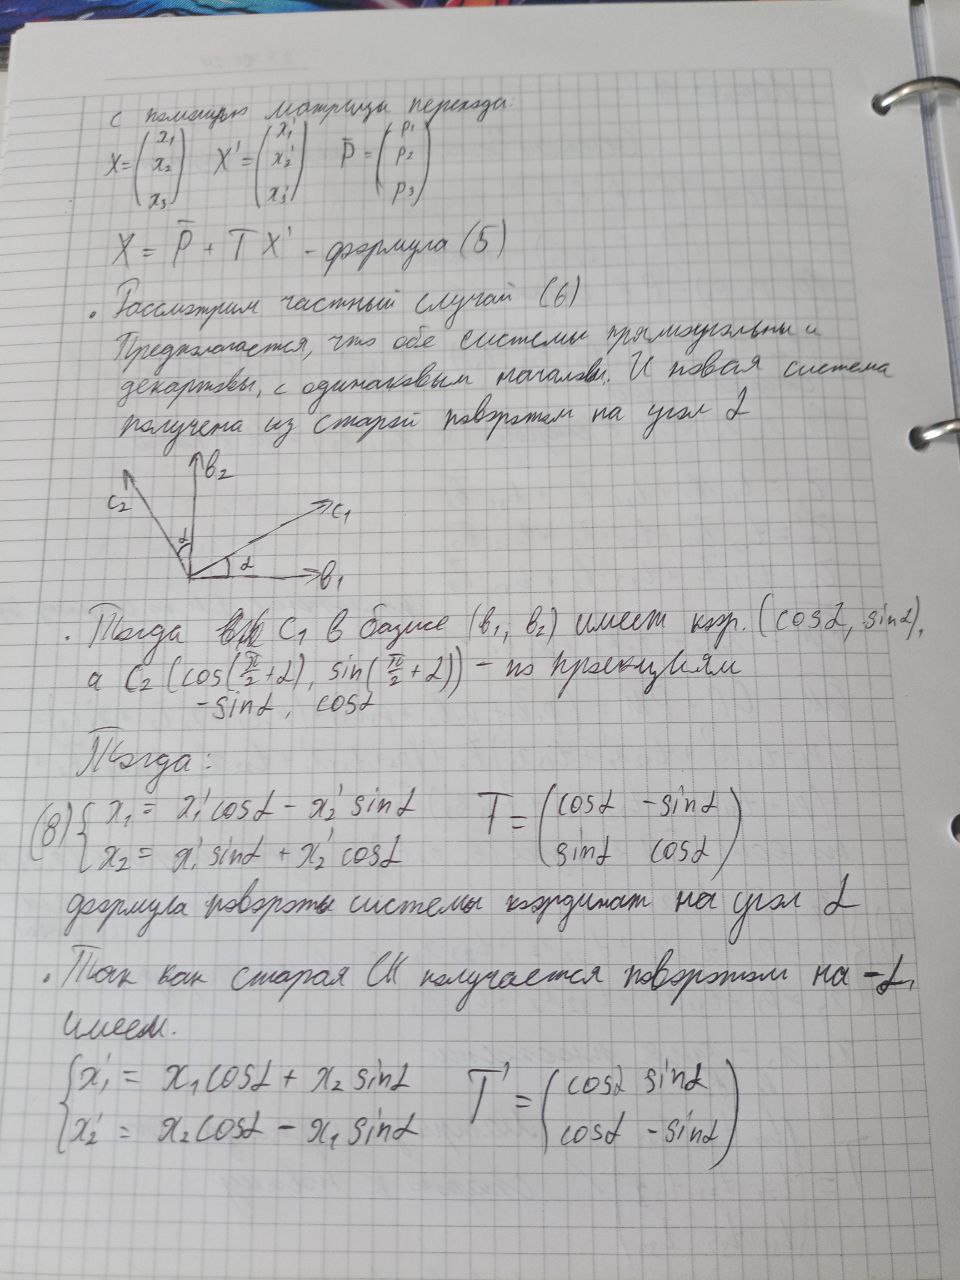 с помощью матрицы перехода.
X = (x₁ x₂ x₃) X' = (x₁' x₂' x₃') P̄ = (p₁ p₂ p₃)
X = P̄ + T X' - формула (5)
• Рассмотрим частный случай (6)
Предполагается, что обе системы прямоугольны и
декартовы, с одинаковым началом. И новая система
получена из старой поворотом на угол α
c₂ b₂ c₁
α α b₁
• Тогда c₁ в базисе (b₁, b₂) имеет коор. (cosα, sinα),
а c₂ (cos(π/2+α), sin(π/2+α)) - по проекциям
-sinα, cosα
Тогда:
(8) { x₁ = x₁' cosα - x₂' sinα T = (cosα -sinα
x₂ = x₁' sinα + x₂' cosα sinα cosα)
формула поворота системы координат на угол α
• Так как старая СК получается поворотом на -α,
имеем.
{ x₁' = x₁ cosα + x₂ sinα T' = (cosα sinα
x₂' = x₂ cosα - x₁ sinα cosα -sinα)